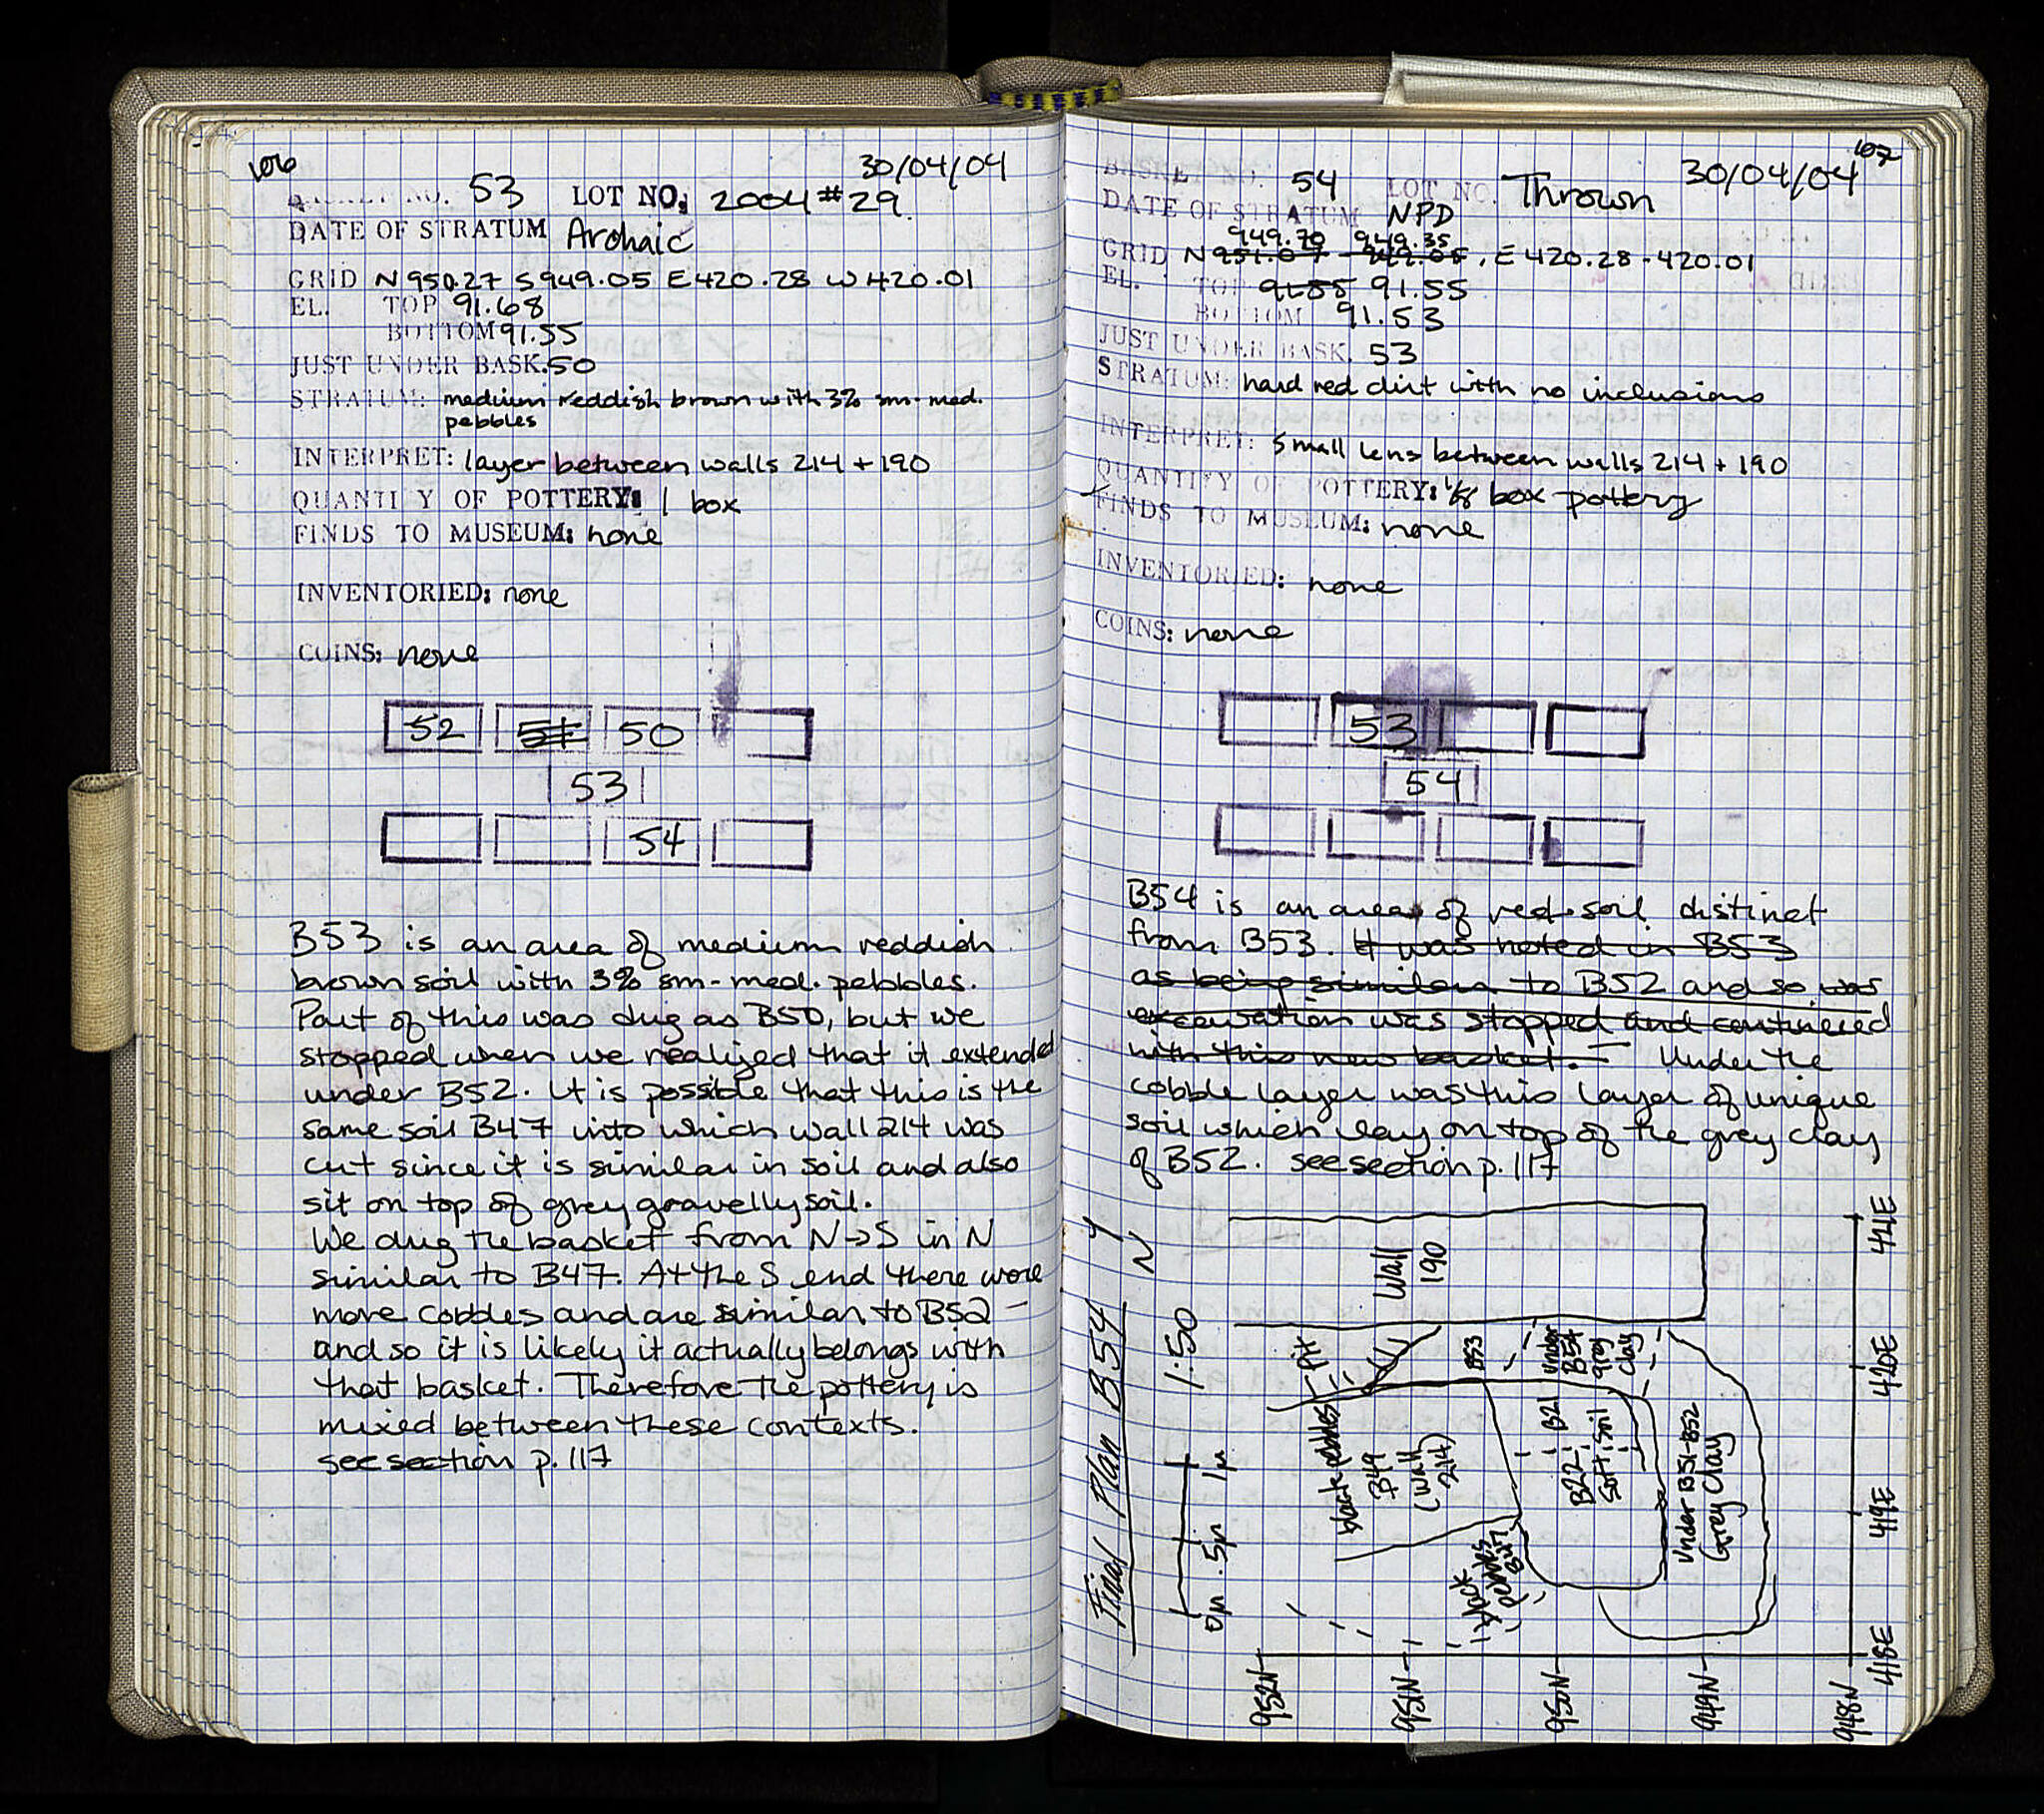 106
30/04/04
BASKET NO. 53 LOT NO; 2004 #29.
DATE OF STRATUM Archaic
GRID N 950.27 S 949.05 E 420.28 W 420.01
EL. TOP 91.68
BOTTOM 91.55
JUST UNDER BASK. 50
STRATUM: medium reddish brown with 3% sm-med.
pebbles
INTERPRET: layer between walls 214 + 190
QUANTITY OF POTTERY: 1 box
FINDS TO MUSEUM: none
INVENTORIED: none
COINS: none
52 51 50
53
54
B53 is an area of medium reddish
brown soil with 3% sm-med. pebbles.
Part of this was dug as B50, but we
stopped when we realized that it extended
under B52. It is possible that this is the
same soil B47 into which wall 214 was
cut since it is similar in soil and also
sit on top of grey gravelly soil.
We dug the basket from N→S in N
similar to B47. At the S end there were
more cobbles and are similar to B52 -
and so it is likely it actually belongs with
that basket. Therefore the pottery is
mixed between these contexts.
see section p. 117
107
30/04/04
BASKET NO. 54 LOT NO. Thrown
DATE OF STRATUM NPD
949.70 949.35
GRID N 951.07 - 949.05, E 420.28 - 420.01
EL. TOP 91.55 91.55
BOTTOM 91.53
JUST UNDER BASK. 53
STRATUM: hard red dirt with no inclusions
INTERPRET: small lens between walls 214 + 190
QUANTITY OF POTTERY: 1/8 box pottery
FINDS TO MUSEUM: none
INVENTORIED: none
COINS: none
53
54
B54 is an area of red soil distinct
from B53. It was noted in B53
as being similar to B52 and so was
excavation was stopped and continued
with this new basket. - Under the
cobble layer was this layer of unique
soil which lay on top of the grey clay
of B52. see section p. 117
Final Plan B54
N
1:50
0m .5m 1m
Wall
190
PH
B53
Under
B54
grey
clay
black pebbles
B49
(Wall
214)
B21
B22
soft soil
Under B51-B52
Grey Clay
black
pebbles
B47
952N
951N
950N
949N
948N
418E
419E
420E
421E